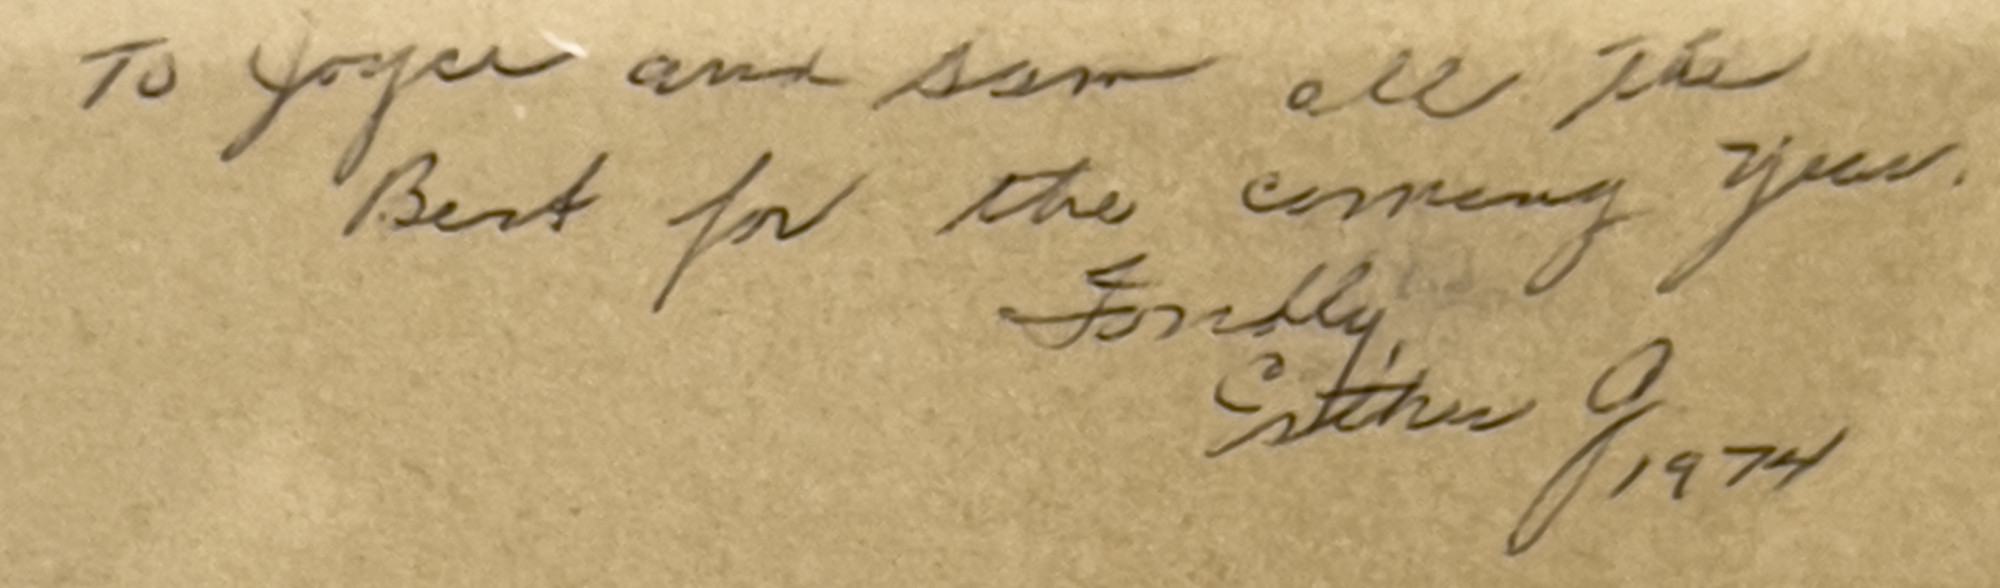 To Joyce and Sam all the
Best for the coming year.
Fondly,
Esther J
1974